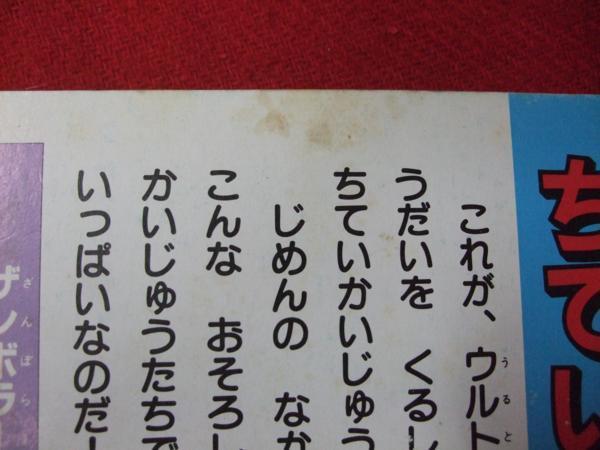 ちてい
これが、ウルト
うると
うだいを くるし
ちていかいじゅう
じめんの なか
こんな おそろし
かいじゅうたちで
いっぱいなのだ
ザンボラー
ざんぼら